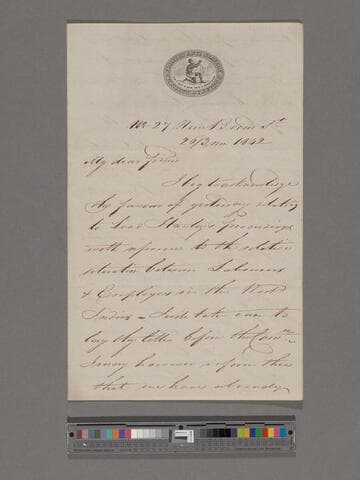 No 27 New Broad St.
20/2 mo 1842
My dear friend
I beg to acknowledge
thy favour of yesterday relating
to Lord Stanley's proceedings
with reference to the relative
situation between Labourers
& Employers in the West
Indies – I will take care to
lay thy letter before the Comm.ee
I may however inform thee
that we have already